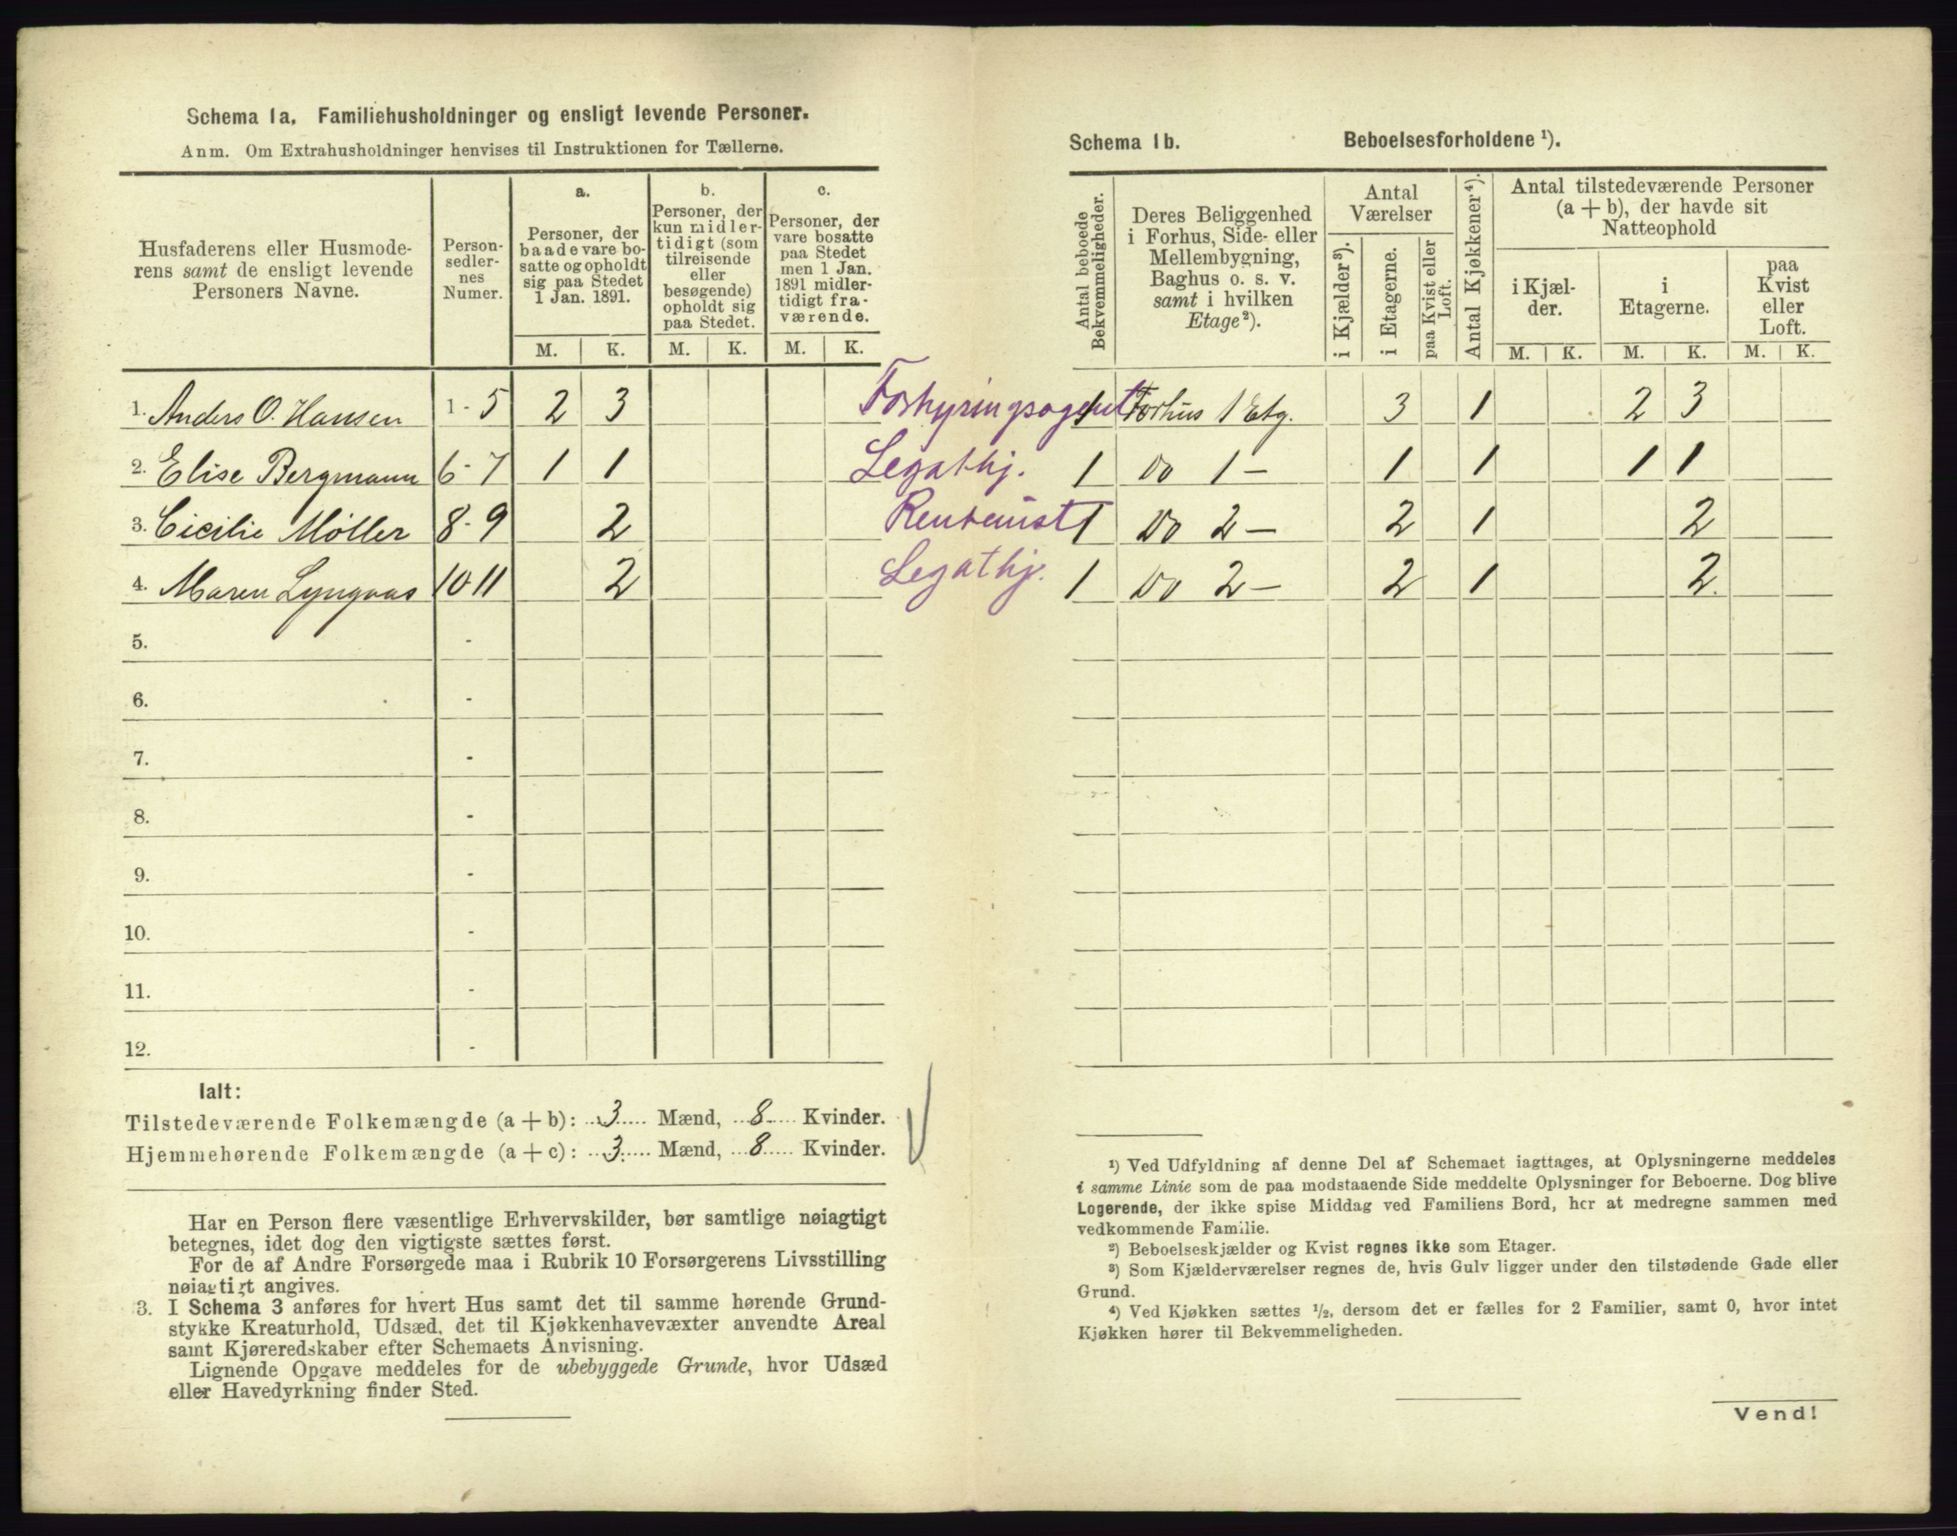 Schema 1a. Familiehusholdninger og ensligt levende Personer.
Anm. Om Extrahusholdninger henvises til Instruktionen for Tællerne.
Husfaderens eller Husmode-
rens samt de ensligt levende
Personers Navne.
Person-
sedler-
nes
Numer.
a.
Personer, der
baade vare bo-
satte og opholdt
sig paa Stedet
1 Jan. 1891.
M. K.
b.
Personer, der
kun midler-
tidigt (som
tilreisende
eller
besøgende)
opholdt sig
paa Stedet.
M. K.
c.
Personer, der
vare bosatte
paa Stedet
men 1 Jan.
1891 midler-
tidigt fra-
værende.
M. K.
1. Anders O. Hansen 1 - 5 2 3
2. Elise Bergmann 6 - 7 1 1
3. Cicilie Møller 8 - 9 2
4. Maren Lyngaas 10 11 2
5. -
6. -
7. -
8. -
9. -
10. -
11. -
12. -
Ialt:
Tilstedeværende Folkemængde (a + b): 3 Mænd, 8 Kvinder.
Hjemmehørende Folkemængde (a + c): 3 Mænd, 8 Kvinder.
Har en Person flere væsentlige Erhvervskilder, bør samtlige nøiagtigt
betegnes, idet dog den vigtigste sættes først.
For de af Andre Forsørgede maa i Rubrik 10 Forsørgerens Livsstilling
nøiagtigt angives.
3. I Schema 3 anføres for hvert Hus samt det til samme hørende Grund-
stykke Kreaturhold, Udsæd, det til Kjøkkenhavevæxter anvendte Areal
samt Kjøreredskaber efter Schemaets Anvisning.
Lignende Opgave meddeles for de ubebyggede Grunde, hvor Udsæd
eller Havedyrkning finder Sted.
Schema 1b. Beboelsesforholdene ¹).
Antal beboede
Bekvemmeligheder.
Deres Beliggenhed
i Forhus, Side- eller
Mellembygning,
Baghus o. s. v.
samt i hvilken
Etage²).
Antal
Værelser
i Kjælder³).
i Etagerne.
paa Kvist eller
Loft.
Antal Kjøkkener⁴).
Antal tilstedeværende Personer
(a + b), der havde sit
Natteophold
i Kjæl-
der.
M. K.
i
Etagerne.
M. K.
paa
Kvist
eller
Loft.
M. K.
Forhyringsagent 1 Forhus 1 Etg. 3 1 2 3
Legathj. 1 Do 1 - 1 1 1 1
Rentenist 1 Do 2 - 2 1 2
Legathj. 1 Do 2 - 2 1 2
¹) Ved Udfyldning af denne Del af Schemaet iagttages, at Oplysningerne meddeles
i samme Linie som de paa modstaaende Side meddelte Oplysninger for Beboerne. Dog blive
Logerende, der ikke spise Middag ved Familiens Bord, her at medregne sammen med
vedkommende Familie.
²) Beboelseskjælder og Kvist regnes ikke som Etager.
³) Som Kjælderværelser regnes de, hvis Gulv ligger under den tilstødende Gade eller
Grund.
⁴) Ved Kjøkken sættes ½, dersom det er fælles for 2 Familier, samt 0, hvor intet
Kjøkken hører til Bekvemmeligheden.
Vend!